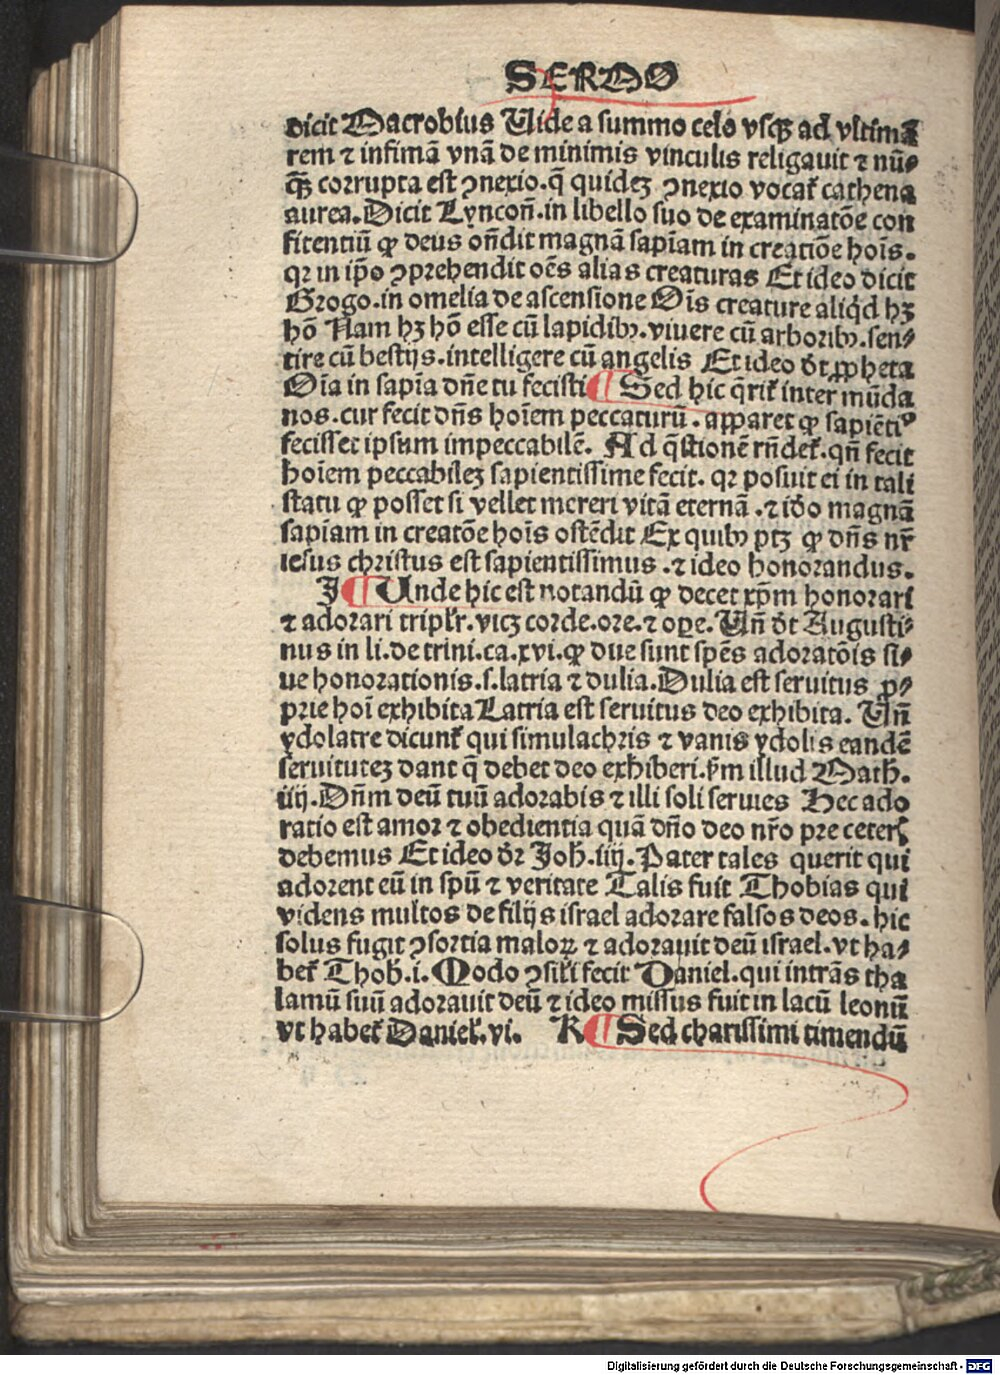 SERMO
dicit Macrobius Uide a summo celo vsqꝫ ad vltimã
rem ⁊ infimã vnã de minimis vinculis religauit ⁊ nũ⸗
q̃ꝫ corrupta est ꝯnexio. q̃ quideꝫ ꝯnexio vocat᷑ cathena
aurea. Dicit Lyncoñ. in libello suo de examinatõe con
fitentiũ ꝙ deus oñdit magnã sapĩam in creatiõe hoĩs.
qꝛ in ip̃o ꝯprehendit oẽs alias creaturas Et ideo dicit
Grogo. in omelia de ascensione Oĩs creature aliq̃d hꝫ
hõ Nam hꝫ hõ esse cũ lapidibꝰ. viuere cũ arboribꝰ. sen⸗
tire cũ bestijs. intelligere cũ angelis Et ideo dt̃ ꝓpheta
Oĩa in sapĩa dñe tu fecisti ¶ Sed hic q̃rit᷑ inter mũda
nos. cur fecit dñs hoĩem peccaturũ. apparet ꝙ sapiẽtiꝰ
fecisset ipsum impeccabilẽ. Ad q̃stionẽ rñdet᷑. qñ fecit
hoĩem peccabileꝫ sapientissime fecit. qꝛ posuit ei in tali
statu ꝙ posset si vellet mereri vitã eternã. ⁊ iðo magnã
sapĩam in creatõe hoĩs ostẽdit Ex quibꝰ ptꝫ ꝙ dñs nr̃
iesus christus est sapientissimus. ⁊ ideo honorandus.
J ¶ Unde hic est notandũ ꝙ decet xp̃m honorari
⁊ adorari triplr̃. vicꝫ corde. ore. ⁊ oꝑe. Uñ dt̃ Augusti⸗
nus in li. de trini. ca. xvi. ꝙ due sunt sp̃es adoratõis si⸗
ue honorationis. s. latria ⁊ dulia. Dulia est seruitus ꝓ⸗
prie hoĩ exhibita Latria est seruitus deo exhibita. Uñ
ydolatre dicunt᷑ qui simulachris ⁊ vanis ydolis eandẽ
seruituteꝫ dant q̃ debet deo exhiberi. ẜm illud Math.
iiij. Dñm deũ tuũ adorabis ⁊ illi soli seruies Hec ado
ratio est amor ⁊ obedientia quã dño deo nr̃o pre ceteris
debemus Et ideo dꝛ Joh̃. iiij. Pater tales querit qui
adorent eũ in spũ ⁊ veritate Talis fuit Thobias qui
videns multos de filijs israel adorare falsos deos. hic
solus fugit ꝯsortia maloꝝ ⁊ adorauit deũ israel. vt ha⸗
bet᷑ Thob̃. i. Modo ꝯsil̃i fecit Daniel. qui intrãs tha
lamũ suũ adorauit deũ ⁊ ideo missus fuit in lacũ leonũ
vt habet᷑ Daniel̃. vi. K ¶ Sed charissimi timendũ
Digitalisierung gefördert durch die Deutsche Forschungsgemeinschaft - DFG